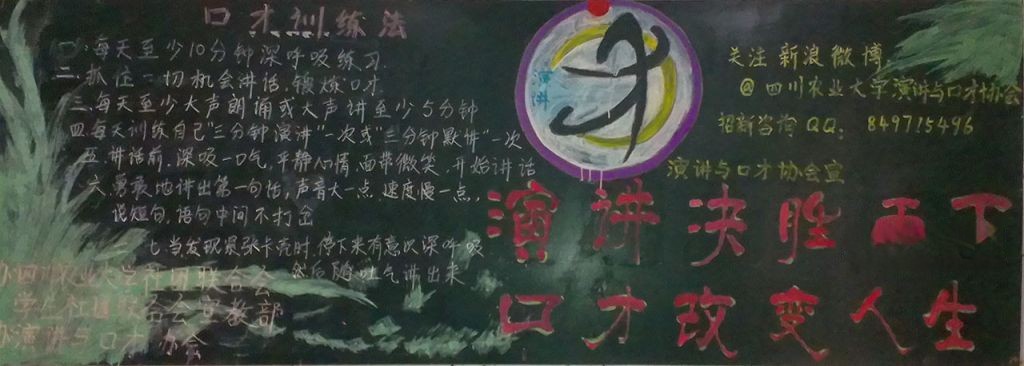 口才训练法
一.每天至少10分钟深呼吸练习.
二.抓住一切机会讲话,锻炼口才.
三.每天至少大声朗诵或大声讲至少5分钟
四.每天训练自己"三分钟演讲"一次或"三分钟默讲"一次
五.讲话前,深吸一口气,平静心情,面带微笑,开始讲话
六.勇敢地讲出第一句话,声音大一点,速度慢一点,
说短句,语句中间不打岔
七.当发现紧张卡壳时,停下来有意识深呼吸
然后随吐气讲出来
四川农业大学社团联合会
学生社团联合会宣教部
演讲与口才协会
演讲
关注新浪微博
@四川农业大学演讲与口才协会
招新咨询QQ: 849715496
演讲与口才协会宣
演讲决胜天下
口才改变人生